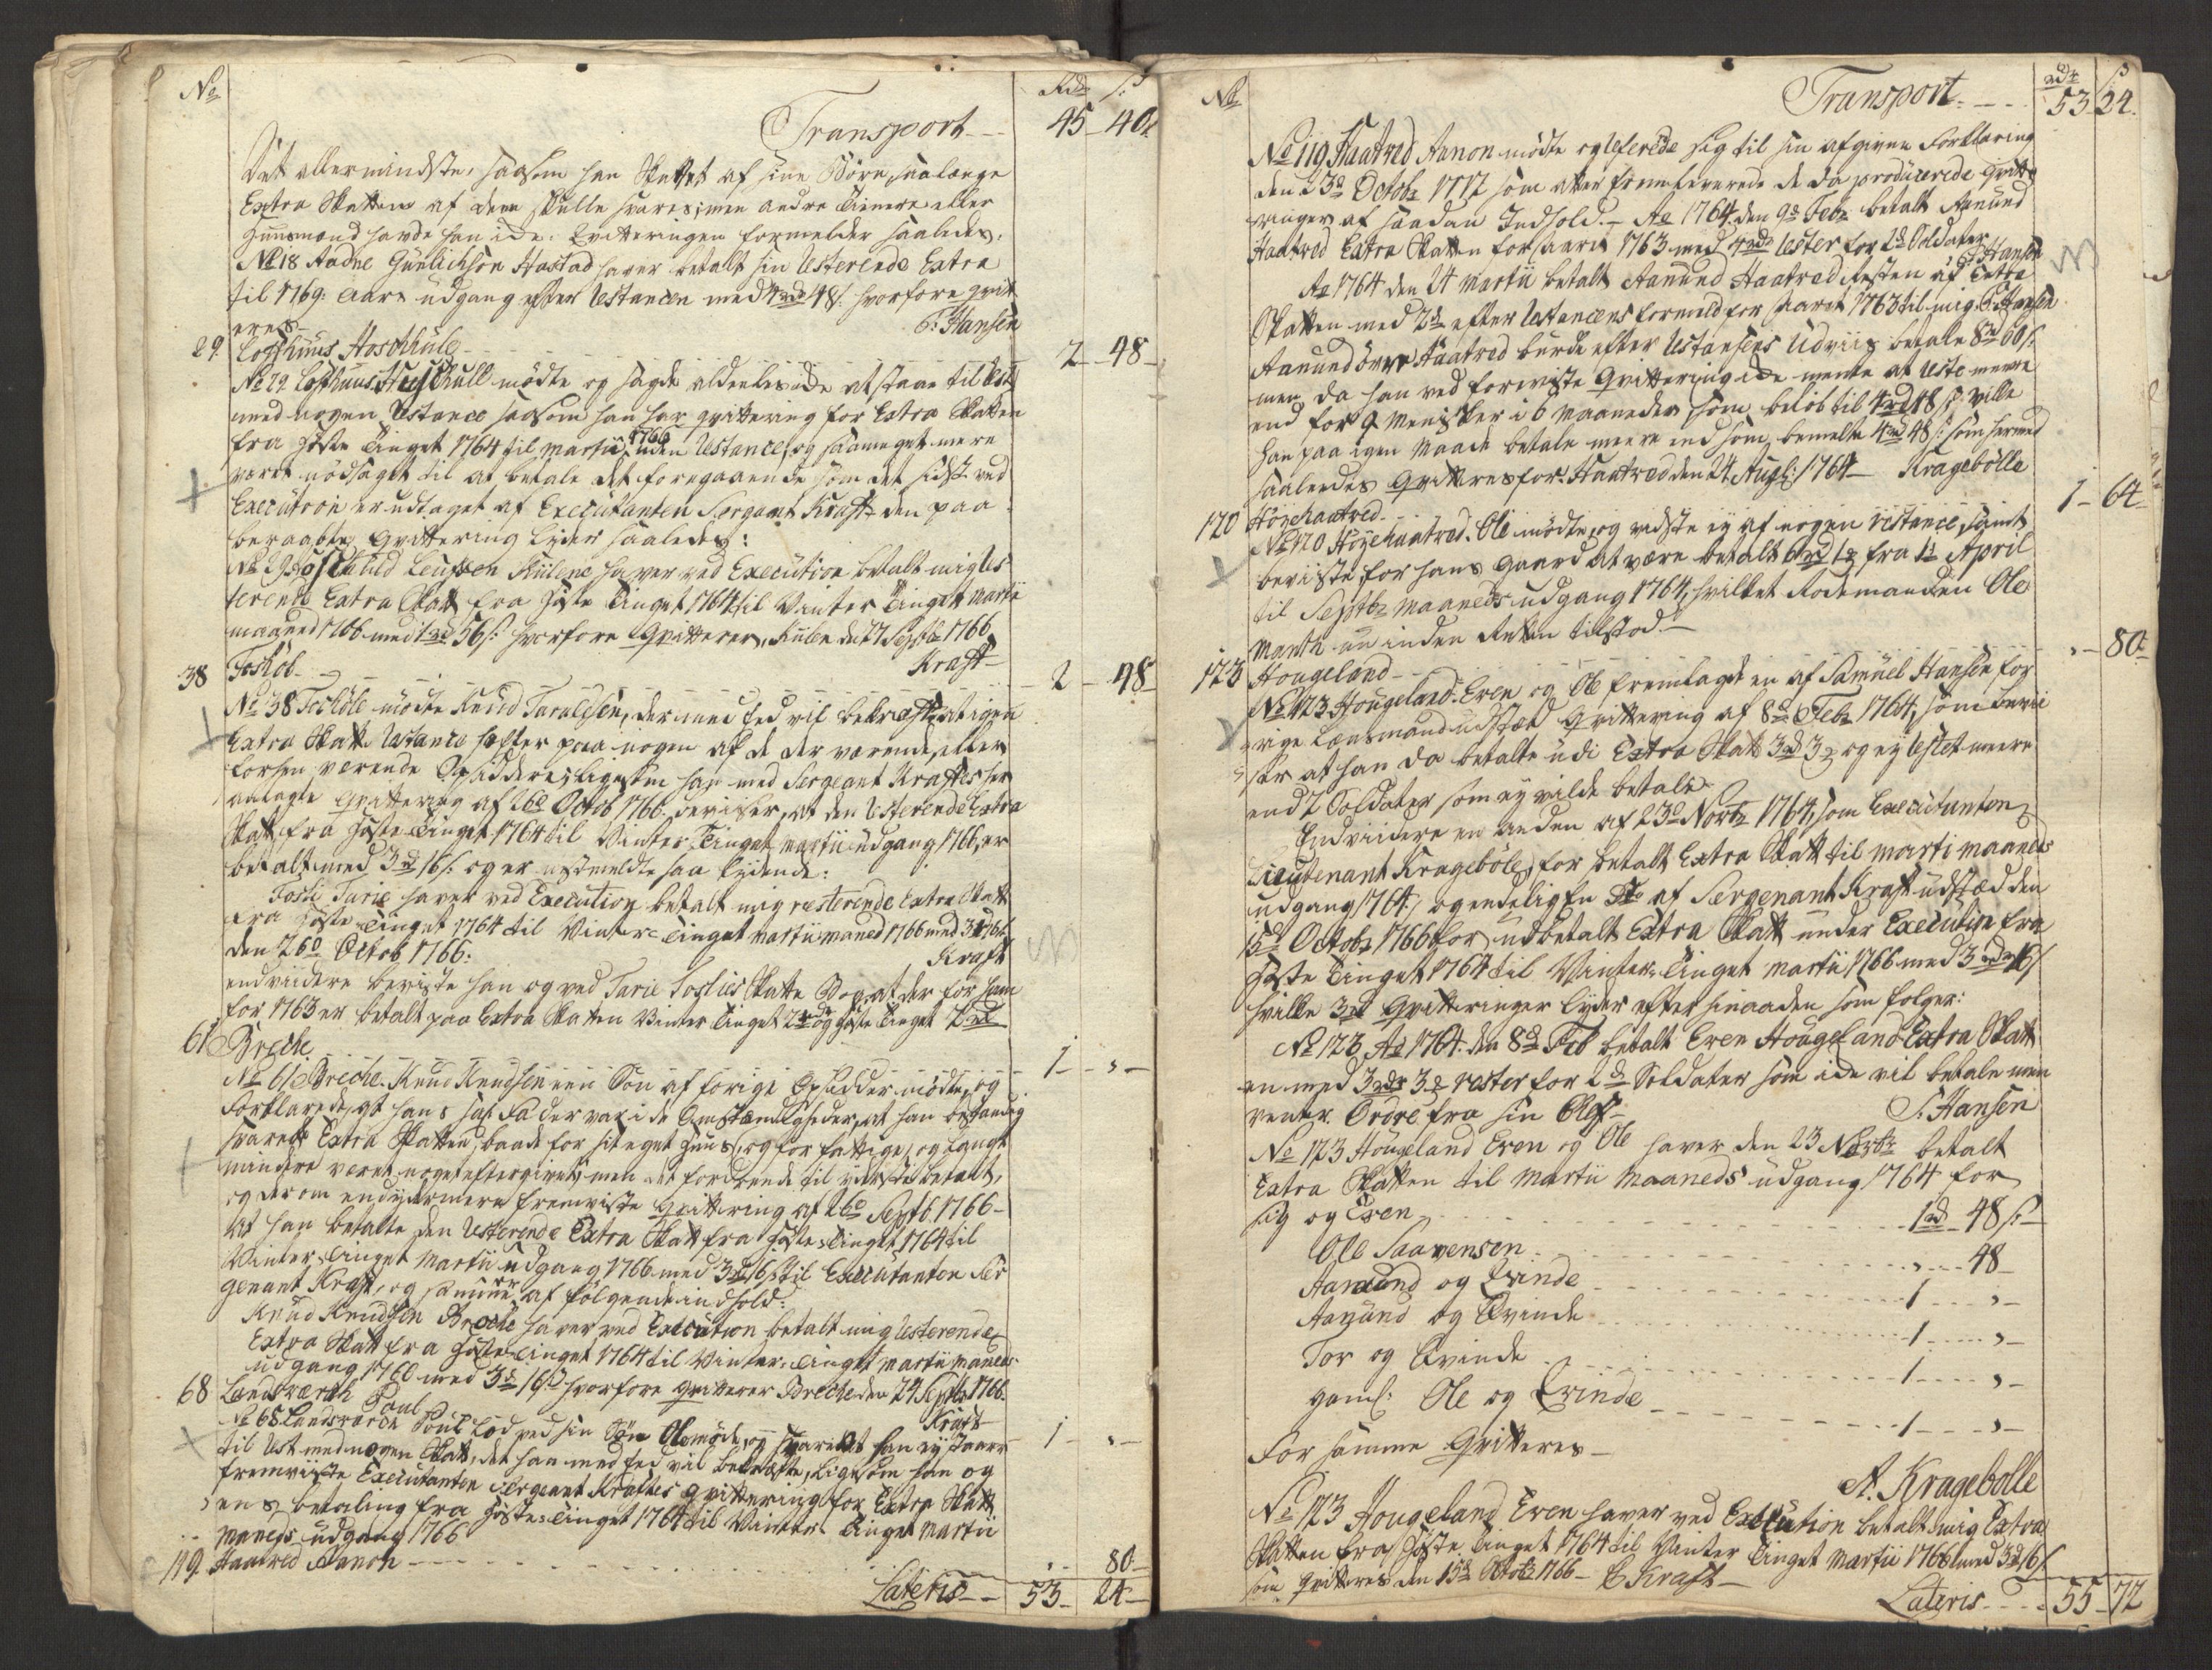 No
Rdr ß:
Transport - - 45 - 40.
Det allermindste, saasom han Skattet af sine Börn, saalænge
Extra Skatten af dem skulle svares; men andre Tienere eller
Huusmænd havde han icke. Qvitteringen formelder saaledes,
No 18 Aadne Gunlichsön Hastad haver betalt sin resterende Extra
til 1769: aars udgang efter restancen med 4rdr 48ß: hvorfore qvit-
teres
S: Hansen
29. Lofthuus Hoschhule - - 2 - 48 -
No 29 Lofthuus mödte og sagde aldeeles icke at staae til Rest
med nogen restance saasom han har qvittering for Extra Skatten
fra Höste Tinget 1764 til Martii 1766 uden restance, og saameget mere
været nödsaget til at betale det foregaaende som det sidste ved
Execution er udtaget af Executanten Sergant Kraft den paa
beraabte Qvittering lyder saaledes:
No 29 Hoschuld Leufsen Kulene haver ved Execution betalt mig res-
terende Extra Skatt fra Höste Tinget 1764 til Vinter Tinget Martii
maaned 1766 med 1rd 56ß: hvorfore Qvitterer, Kulen den 27 Septbr 1766
Kraft
38 Fosköb - - 2 - 48 -
No 38 Fosköle mödte Knud Taraldsen, der med Eed vil bekræfte, at igen
Extra Skatte restance hefter paa nogen af de der værende, eller
forhen værende Opsiddere; ligesom han med Sergeant Kraftes her
anlagte qvittering af 26de Octob 1766 beviiser, at den resterende Extra
Skatt fra Höste Tinget 1764 til Vinter Tinget Martii udgang 1766, er
betalt med 3rd 16ß: og er ansmeldte saa lydende:
Foslie Tarie haver ved Execution betalt mig resterende Extra Skatt
fra Höste Tinget 1764 til Vinter Tinget Martii maned 1766 med 3rd 16ß
den 26de Octob 1766:
Kraft
endviidere beviste han og ved Tarie Foslies Skatte Bog, at der for ham
for 1763 er betalt paa Extra Skatten Vinter Tinget 2rdr og Höste Tinget 2rd
61 Breche - - 1 - " -
No 61 Breche. Knud Knudsen een Sön af forige Opsidder mödte, og
forklarede, at hans sal Fader var i de Omstændigheder, at han bestandig
svarede Extra Skatten, baade for sit eget Huus, og for fattige, og langt
mindre været noget eftergivet, men det fordrende til yderste betalt,
og derom endydermere fremviiste Qvittering af 26de Septb 1766 -
at han betalte den resterende Extra Skatt fra Höste Tinget 1764 til
Vinter Tinget Martii udgang 1766 med 3rd 16ß til Executanten Ser
genant Kraft, og samme er af fölgende indhold:
Knud Knudsen Breche haver ved Execution betalt mig resterende
Extra Skatt fra Höste Tinget 1764 til Vinter Tinget Martii maneds
udgang 1766 med 3rd 16ß: hvorfore qvitterer Breche den 24 Septbr 1766
68 Landsværch Poul Kraft
No 68 Landsværch Poul lod ved sin Sön Ole möde, og svaret at han ey staaer - 1 - " -
til Rest med nogen Skatt, det han med Eed vil bekræfte, ligesom han og
fremviiste Executanten Sergeant Kraftes qvittering for Extra Skatt
ens betaling fra Höste Tinget 1764 til Vinter Tinget Martii
Maneds udgang 1766
119. Haatved Aanon - - " - 80 -
Lateris - - 53 - 24 -
No
rdr ß
Transport - - 53 24.
No 119 Haatved Aanon mödte og refererede sig til sin afgivne forklaring
den 23de Octobr 1772 som atter fremleverede de da producerede Qvitte
ringer af saadan Indhold. - Ao 1764 den 9de Febr betalt Aanund
Haatved Extra Skatten for aaret 1763 med 4rdr rester for 2de Soldater
S Hansen
Ao 1764 den 24 Martii betalt Aanund Haatved Resten af Extra
Skatten med 2rd efter restancens formeld for Aaret 1763 til mig. S: Hansen
Aanund övre Haatved burde efter restansens Udviis betale 8rd 60ß:
men da han ved forviste Qvittering icke mente at reste meere
end for 9 Mennisker i 6 Maaneder, som belöb til 4rd 48ß: ville
han paa igen Maade betale meere end som bemelte 4rd 48ß: som hermed
saaleedes qvitteres for. Haatved den 24 Augst: 1764 - Kragebölle
120 Höyehaatved - - 1 - 64 -
No 120 Höyehaatved. Ole mödte, og vidste ey af nogen restance, samt
beviiste, for hans gaard at være betalt 6rd 1ß fra 1te April
til Septbr maaneds udgang 1764, hvilket Rodemanden Ole
Mantz nu inden Retten tilstod. -
123 Hougeland - - " - 80 -
No 123 Hougeland. Even og Ole fremlagde en af Samuel Hansen for
rige Lænsmand udstæd Qvittering af 8de Febr 1764, som bevii
ser at han da betalte udi Extra Skatt 3rd 3ß og ey restet meere
end 2 Soldater som ey vilde betale
Endviidere en anden af 23de Novbr 1764, som Executanten
Lieutenant Kragebölle for betalt Extra Skatt til Marti maaneds
udgang 1764, og endelig en dto af Sergenant Kraft udstæd den
15de Octobr 1766 for udbetalt Extra Skatt under Execution fra
Höste Tinget 1764 til Vinter Tinget Martii 1766 med 3rdr 16ß
hvilke 3de Qvitteringer lyder efter hinanden som fölger:
No 123 Ao 1764. den 8de Feb betalt Even Hougeland Extra Skatt
en med 3rdr 3ß rester for 2de Soldater som icke vil betale men
venter Ordre fra sin Chef -
S: Hansen
No 123 Hougeland Even og Ole haver den 23 Novbr betalt
Extra Skatten til Martii Maaneds udgang 1764 for
sig og Even - - 1rd 48ß -
Ole Saavensen - - " - 48 -
Aanund og Qvinde - - 1 - " -
Aanund og Qvinde - - 1 - " -
Tor og Qvinde - - 1 - " -
gaml: Ole og Qvinde - - 1 - " -
For samme Qvitteres -
A. Kragebölle
No 123 Hougeland Even haver ved Execution betalt mig Extra
Skatten fra Höste Tinget 1764 til Vinter Tinget Martii 1766 med 3rd 16ß
som Qvitteres den 15de Octobr 1766 - C Kraft -
Lateris - - 55 - 72